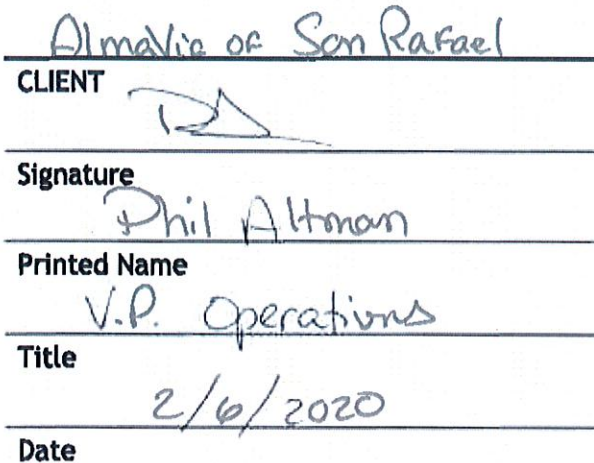 AlmaVia of San Rafael
CLIENT
Signature
Phil Altman
Printed Name
V.P. Operations
Title
2/6/2020
Date